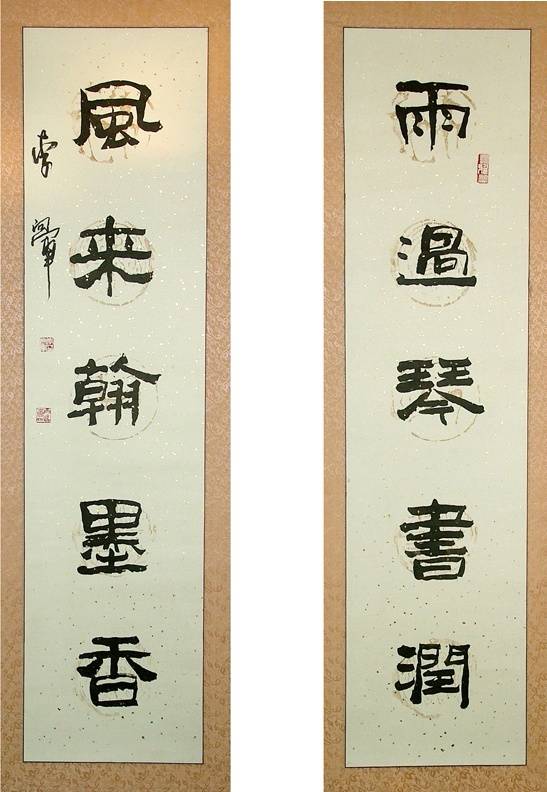 雨過琴書潤
風来翰墨香